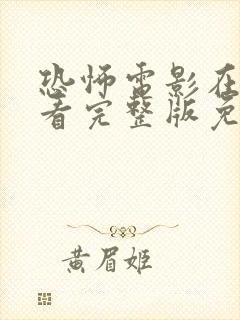 恐怖电影在
看完整版免
黄眉姬